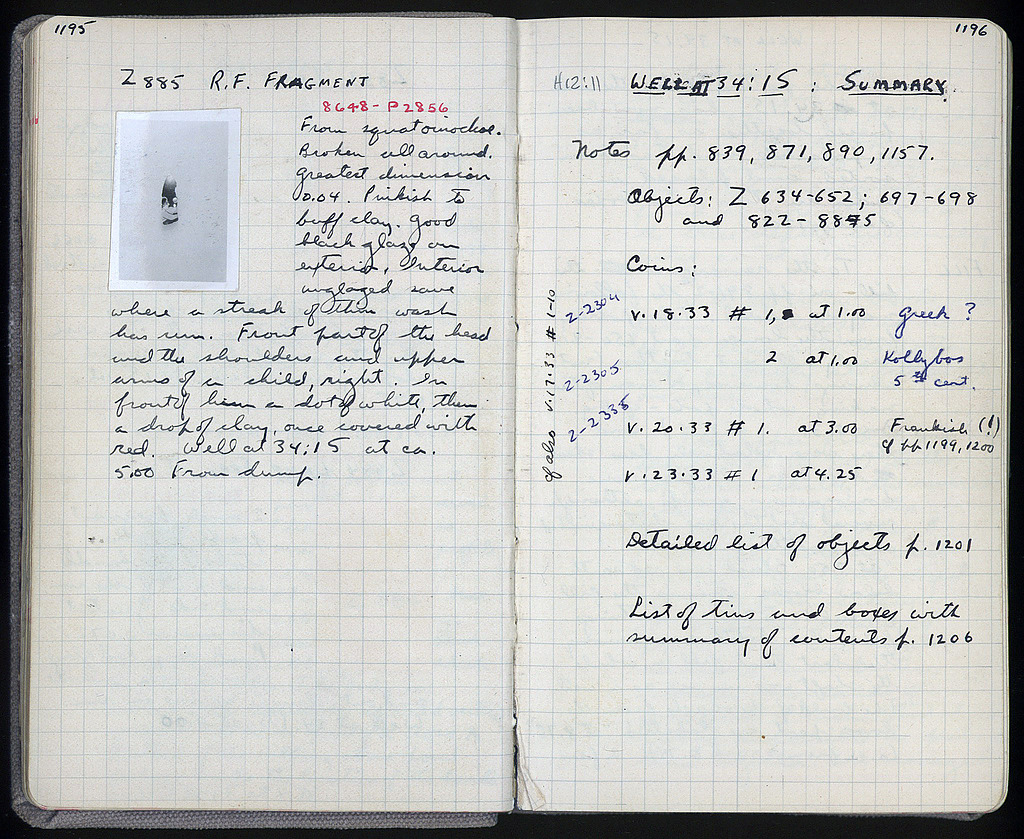 1195
Z 885 R.F. FRAGMENT
8648-P2856
From squat oinochoe.
Broken all around.
greatest dimension
0.04. Pinkish to
buff clay. good
black glaze on
exterior, Interior
unglazed save
where a streak of thin wash
has run. Front part of the head
and the shoulders and upper
arms of a child, right. In
front of him a dot of white, then
a drop of clay, once covered with
red. Well at 34:15 at ca.
5.00 From dump.
1196
H12:11 WELL AT 34:15 : SUMMARY.
Notes pp. 839, 871, 890, 1157.
Objects: Z 634-652; 697-698
and 822-885
Coins:
cf also V.17.33 # 1-10
2-2304 V.18.33 # 1, at 1.00 Greek ?
2 at 1.00 Kollybos
2-2305 5th cent.
2-2335 V.20.33 # 1. at 3.00 Frankish (!)
cf pp 1199, 1200
V.23.33 # 1 at 4.25
Detailed list of objects p. 1201
List of tins and boxes with
summary of contents p. 1206